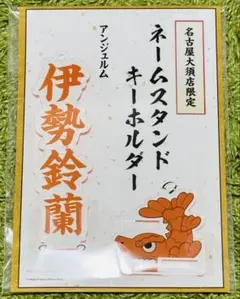 名古屋大須店限定
ネームスタンド
キーホルダー
アンジュルム
伊勢鈴蘭